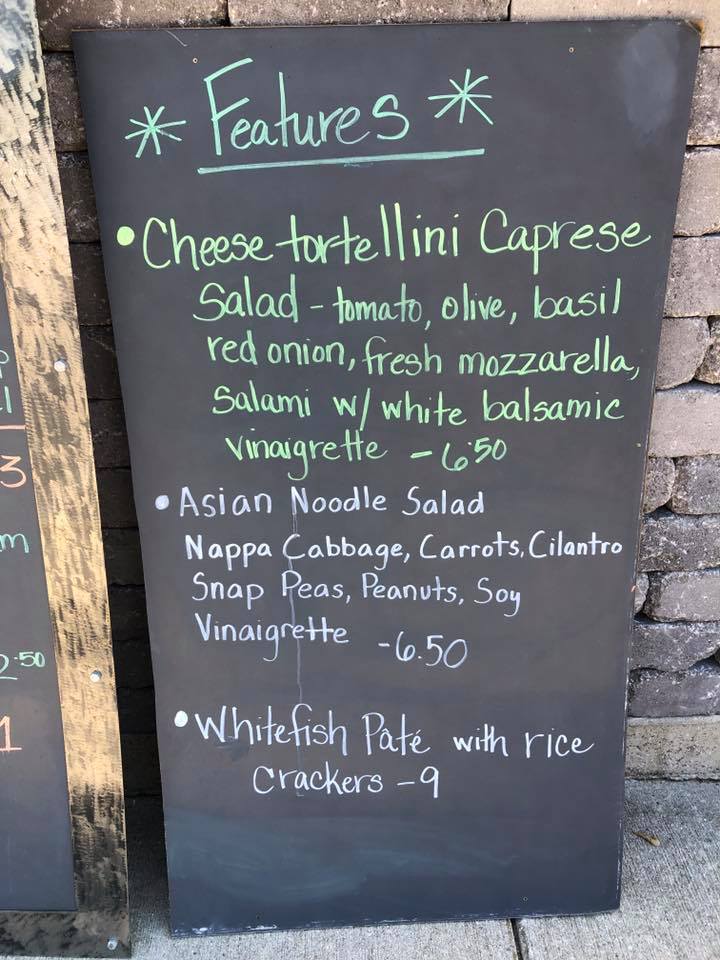 * Features *
• Cheese tortellini Caprese
Salad - tomato, olive, basil
red onion, fresh mozzarella,
Salami w/ white balsamic
vinaigrette - 6.50
• Asian Noodle Salad
Nappa Cabbage, Carrots, Cilantro
Snap Peas, Peanuts, Soy
Vinaigrette -6.50
• Whitefish Pâté with rice
Crackers - 9
3
m
2.50
1